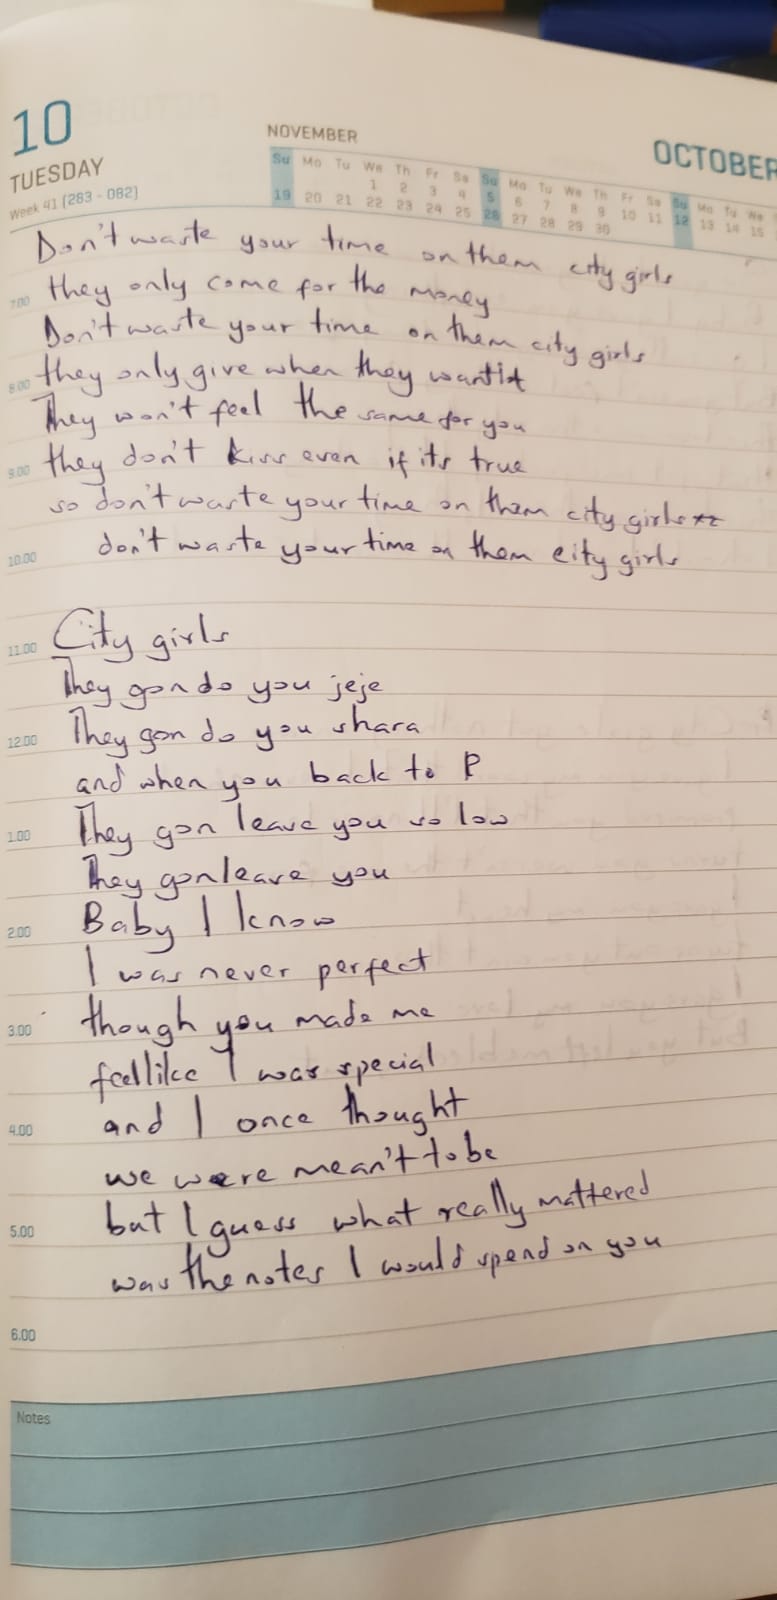 10
TUESDAY
Week 41 (283 - 082)
NOVEMBER
OCTOBER
Su Mo Tu We Th Fr Sa Su Mo Tu We Th Fr Sa Su Mo Tu We
1 2 3 4 5 6 7 8 9 10 11 12 13 14 15
19 20 21 22 23 24 25 26 27 28 29 30
Don't waste your time on them city girls
7.00 they only come for the money
Don't waste your time on them city girls
8.00 they only give when they want it
They won't feel the same for you
9.00 they don't kiss even if its true
so don't waste your time on them city girls
10.00 don't waste your time on them city girls
11.00 City girls
They gon do you jeje
12.00 They gon do you shara
and when you back to P
1.00 They gon leave you so low
They gon leave you
2.00 Baby I know
I was never perfect
3.00 though you made me
feel like I was special
4.00 and I once thought
we were mean't to be
5.00 but I guess what really mattered
was the notes I would spend on you
6.00
Notes